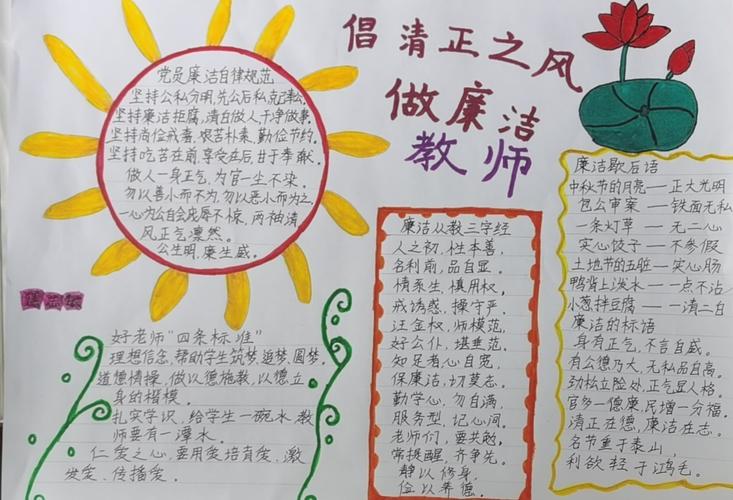 倡清正之风
做廉洁
教师
党员廉洁自律规范
坚持公私分明,先公后私,克己奉公。
坚持廉洁拒腐,清白做人,干净做事。
坚持尚俭戒奢,艰苦朴素,勤俭节约。
坚持吃苦在前,享受在后,甘于奉献。
做人一身正气,为官一尘不染。
勿以善小而不为,勿以恶小而为之。
一心为公自会宠辱不惊,两袖清
风正气凛然。
公生明,廉生威。
好老师“四条标准”
理想信念,帮助学生筑梦,追梦,圆梦。
道德情操,做以德施教,以德立
身的楷模。
扎实学识,给学生一碗水,教
师要有一潭水。
仁爱之心,要用爱培育爱,激
发爱,传播爱。
廉洁从教三字经
人之初,性本善,
名利前,品自显。
情系生,慎用权,
戒诱惑,操守严。
汪金权,师模范,
好公仆,堪垂范,
知足者,心自宽,
保廉洁,切莫忘。
勤学心,勿自满,
服务型,记心间。
老师们,要共勉,
常提醒,齐争先。
静以修身,
俭以养德。
廉洁歇后语
中秋节的月亮——正大光明
包公审案——铁面无私
一条灯草——无二心
实心饺子——不参假
土地爷的五脏——实心肠
鸭背上泼水——一点不沾
小葱拌豆腐——一清二白
廉洁的标语
身有正气,不言自威。
有公德乃大,无私品自高。
劲松立险处,正气显人格。
官多一德廉,民增一分福。
清正在德,廉洁在志。
名节重于泰山,
利欲轻于鸿毛。